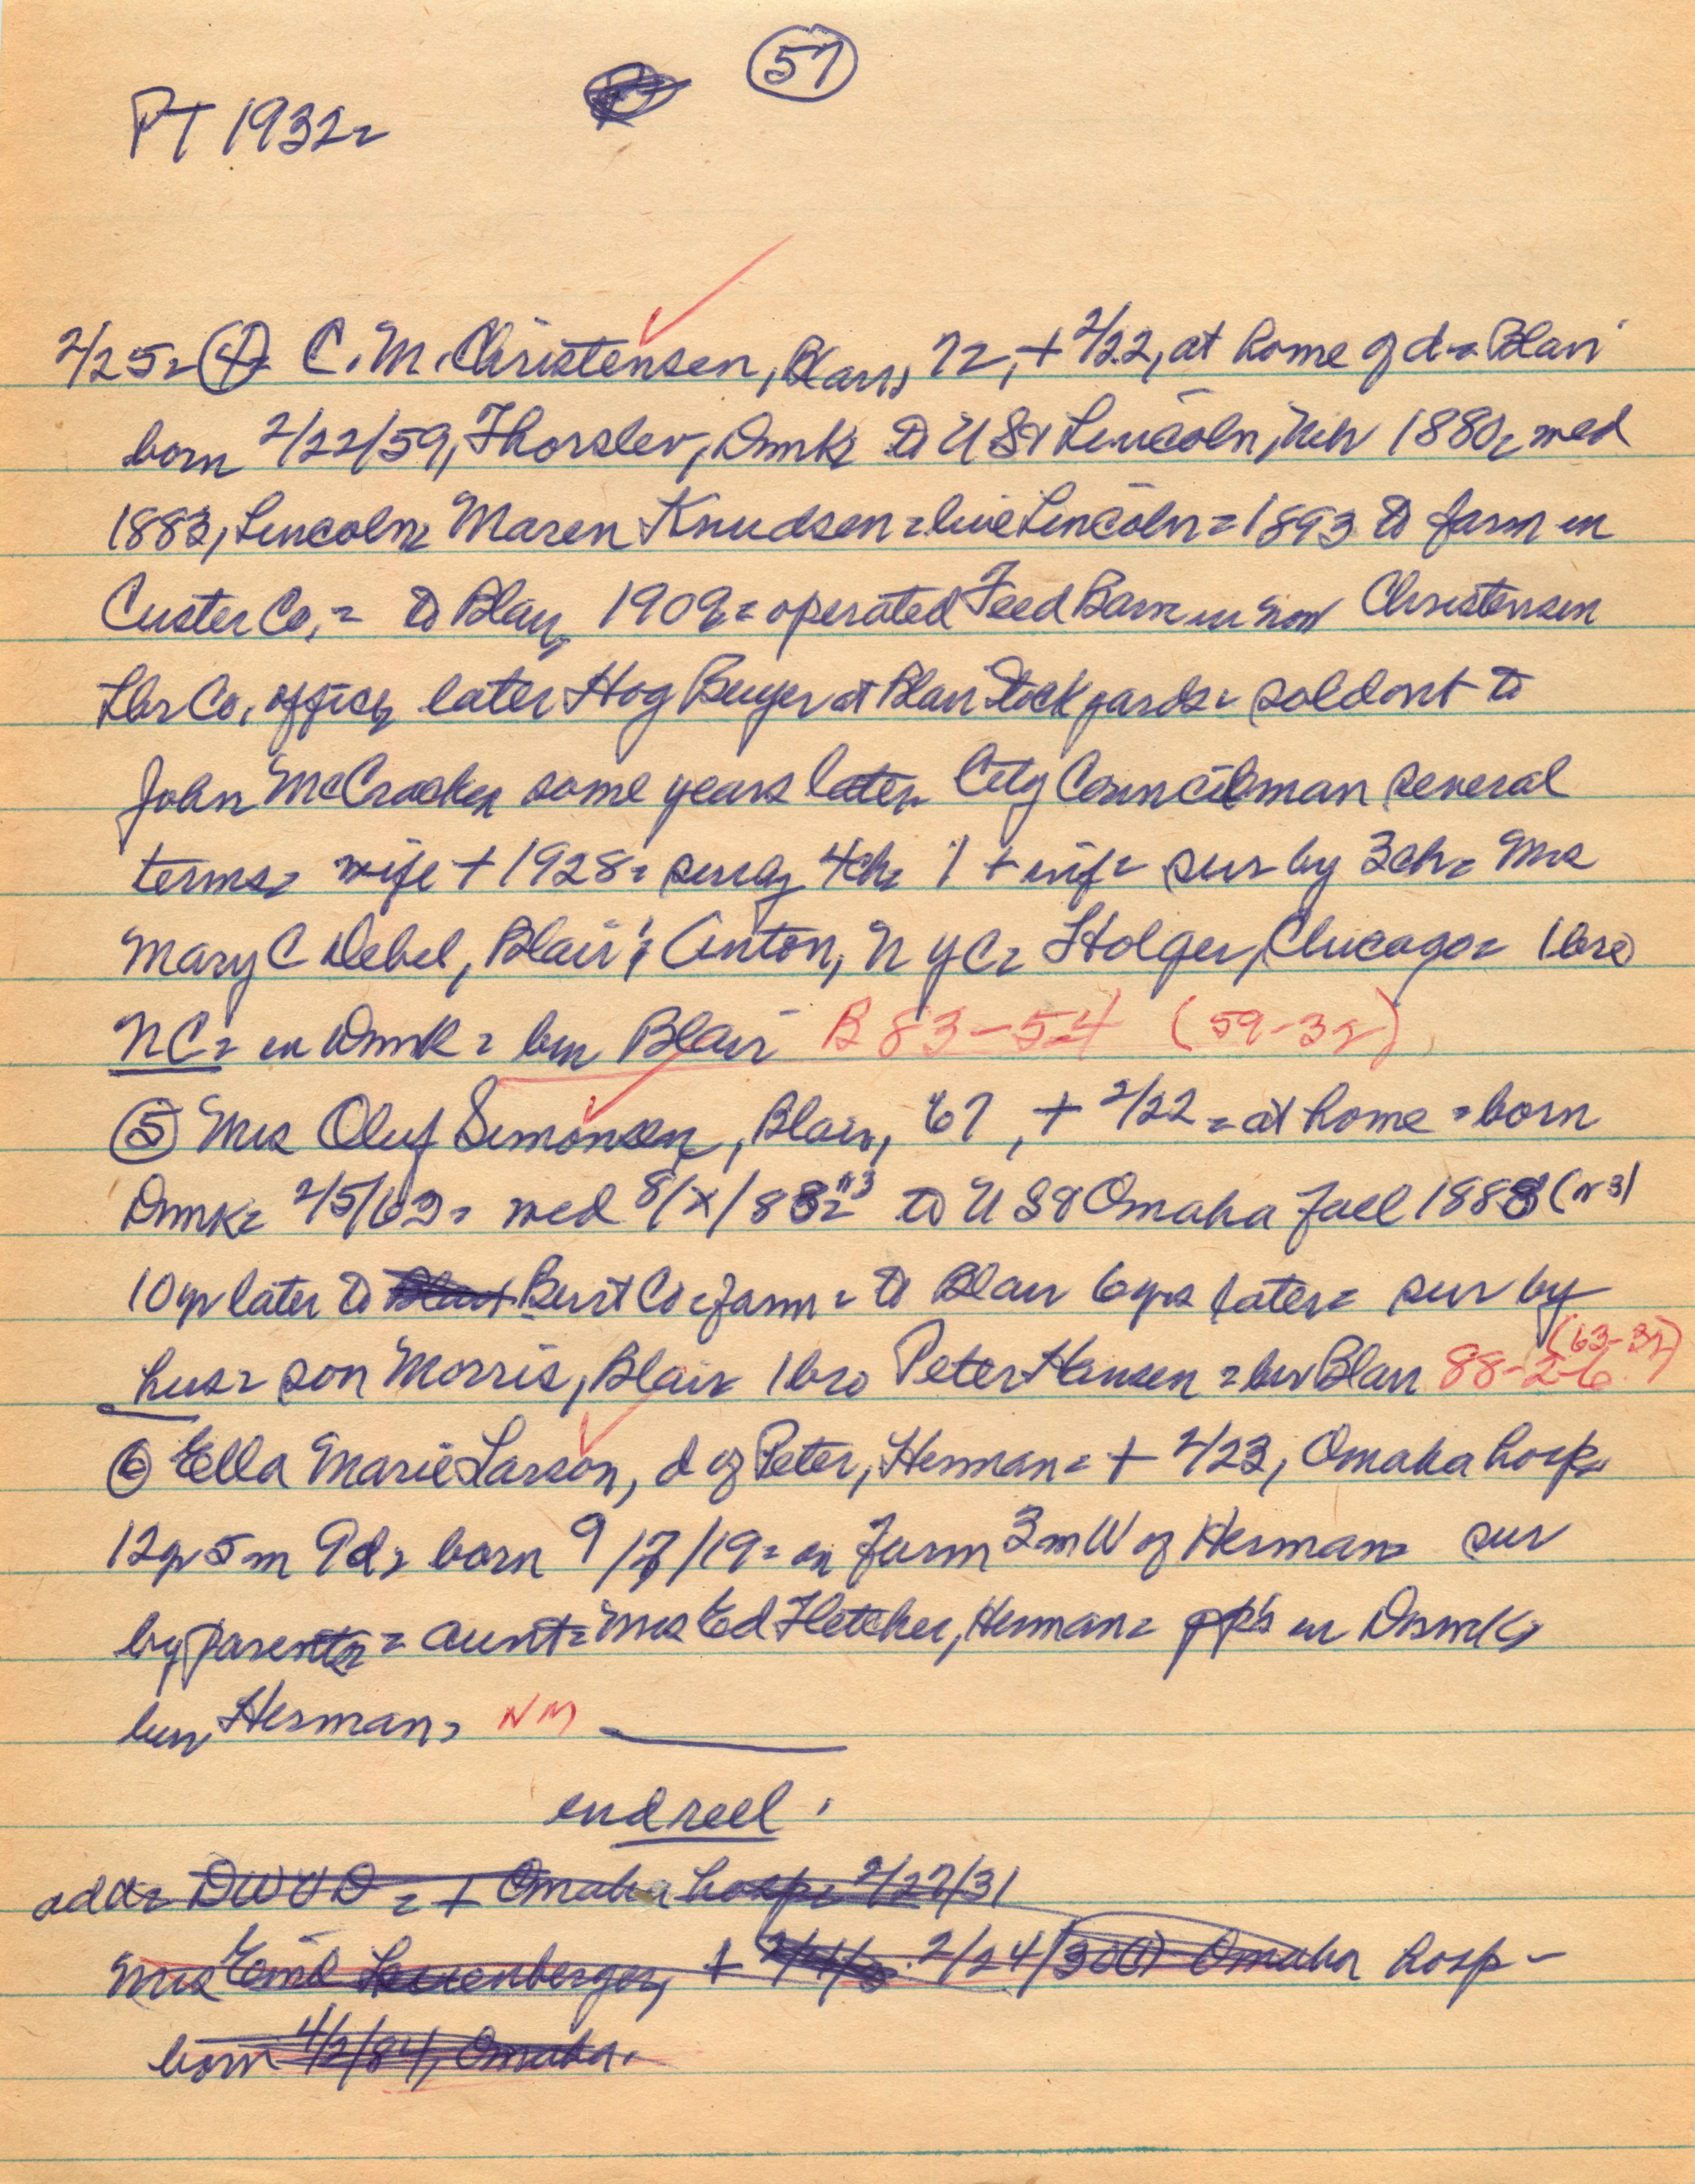 57
PT 1932=
2/25= 4 C. M. Christensen, Blair, 72, + 2/22, at home of d= Blair
born 2/22/59, Thorslev, Dnmk= to US & Lincoln, Neb 1880= med
1883, Lincoln= Maren Knudsen= live Lincoln= 1893 to farm in
Custer Co.= to Blair, 1909= operated Feed Barn in now Christensen
Lbr Co. office, later Hog Buyer at Blair Stock yards= sold out to
John McCracken some years later= City Councilman several
terms= wife + 1928= 4ch= 1 + inf= sur by 3ch= Mrs
Mary C Debel, Blair; Anton, NYC= Holger, Chicago= 1bro
NC= in Dnmk= bur Blair B 83-54 (59-32)
5 Mrs Oluf Simonsen, Blair, 67, + 2/22= at home= born
Dnmk= 2/5/63= med 8/x/88= to US & Omaha fall 1888
10yr later to Burt Co= farm= to Blair 6yrs later= sur by
hus= son Morris, Blair= 1bro Peter Hansen= bur Blair 88-2-6 (63-32)
6 Ella Marie Larson, d of Peter, Herman= + 2/23, Omaha hosp=
12yr 5m 9d= born 9/17/19= on farm 3mW of Herman= sur
by parents= aunt= Mrs Ed Fletcher, Herman= in Dnmk=
bur Herman= NM
end reel.
add= DWOD= + Omaha hosp= 2/27/31
Mrs Emil Leuenberger, + 2/24/30 Omaha hosp-
born 4/2/84, Omaha.